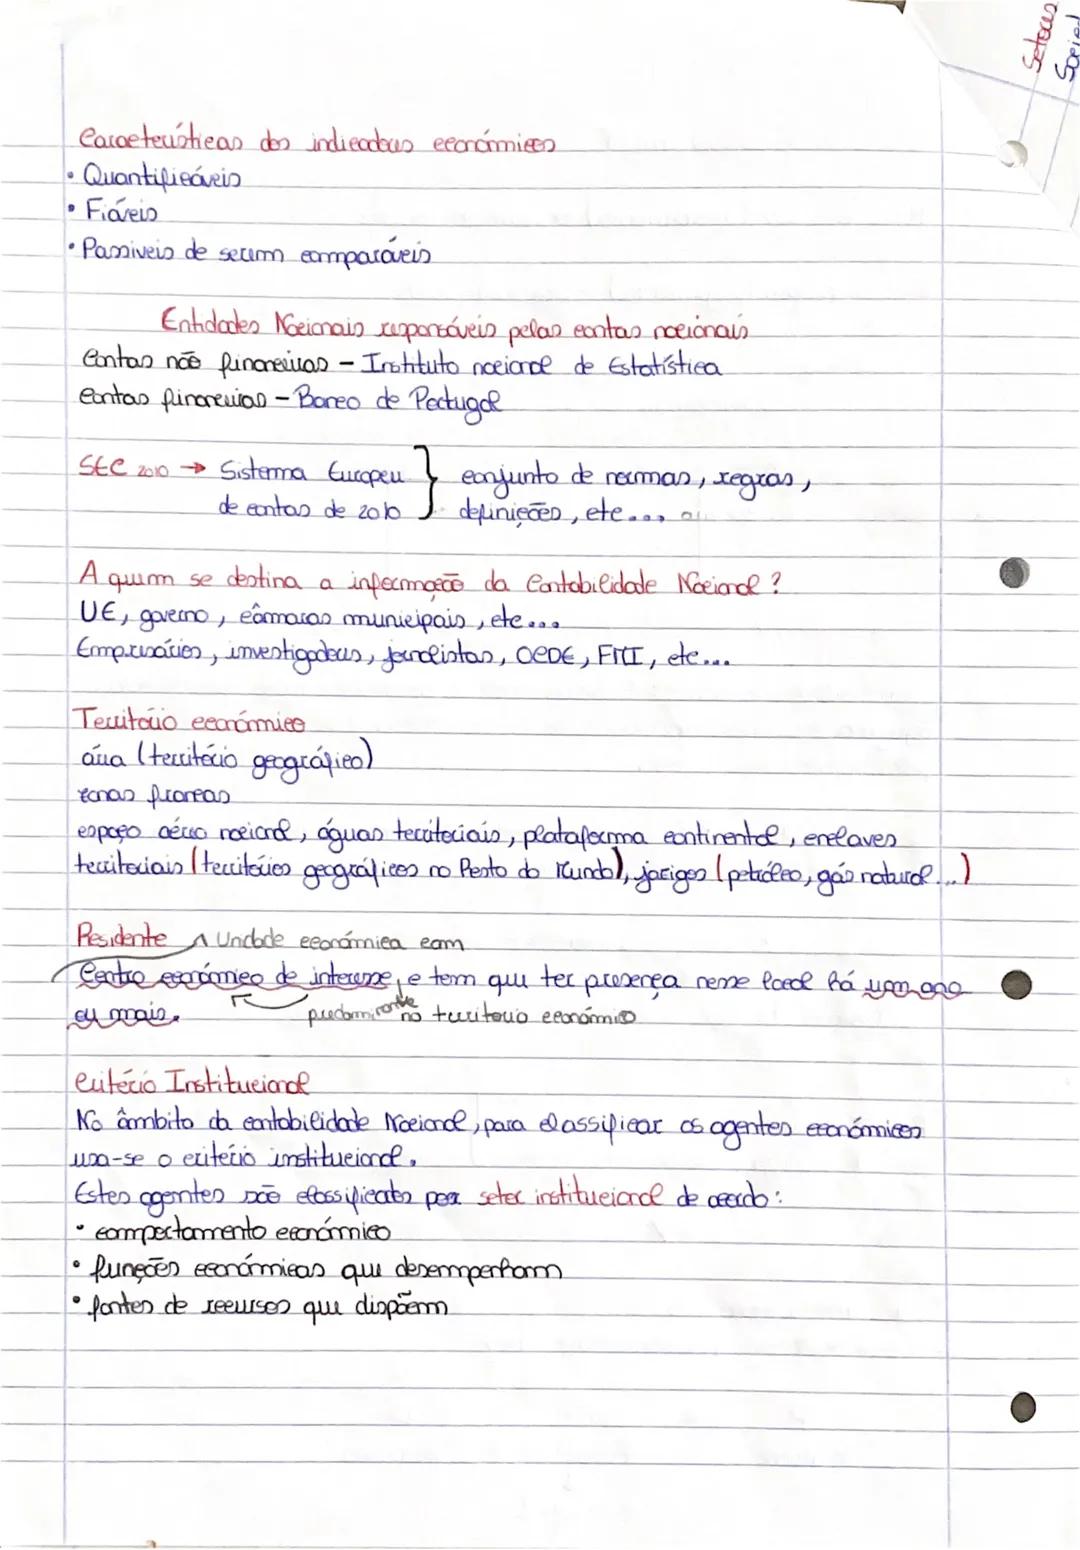 Setores
Socied
Características dos indicadores económicos
• Quantificáveis
• Fiáveis
• Passiveis de serem comparáveis
Entidades Nacionais responsáveis pelas contas nacionais
Contas não financeiras - Instituto nacional de Estatística
Contas financeiras - Banco de Portugal
SEC 2010 → Sistema Europeu } conjunto de normas, regras,
de contas de 2010 definições, etc...
A quem se destina a informação da Contabilidade Nacional?
UE, governo, câmaras municipais, etc...
Empresários, investigadores, jornalistas, OCDE, FMI, etc...
Território económico
área (território geográfico)
zonas francas
espaço aéreo nacional, águas territoriais, plataforma continental, enclaves
territoriais (territórios geográficos no Resto do Mundo), jazigos (petróleo, gás natural...)
Residente Unidade económica com
Centro económico de interesse, e tem que ter presença nesse local há um ano
ou mais. predominante no território económico
Critério Institucional
No âmbito da contabilidade Nacional, para classificar os agentes económicos
usa-se o critério institucional.
Estes agentes são classificados por setor institucional de acordo:
• comportamento económico
• funções económicas que desempenham
• fontes de recursos que dispõem